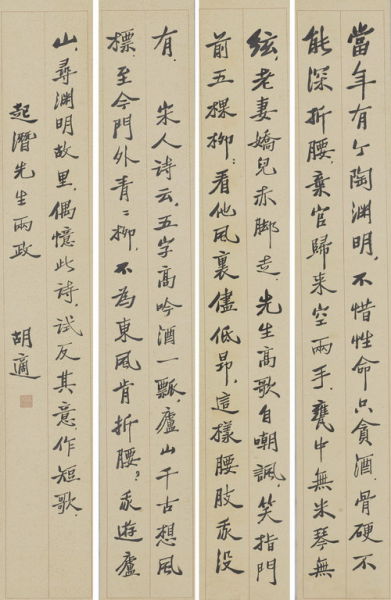 當年有个陶淵明，不惜性命只貪酒，骨硬不
能深折腰，棄官歸來空兩手，甕中無米琴無
絃，老妻嬌兒赤脚走。先生高歌自嘲諷，笑指門
前五棵柳：看他風裏儘低昂，這樣腰肢我沒
有。 宋人诗云，五字高吟酒一瓢，廬山千古想風
標，至今門外青〻柳，不為東風肯折腰？我遊廬
山，尋淵明故里，偶憶此詩，試反其意作短歌，
起潛先生兩政 胡適